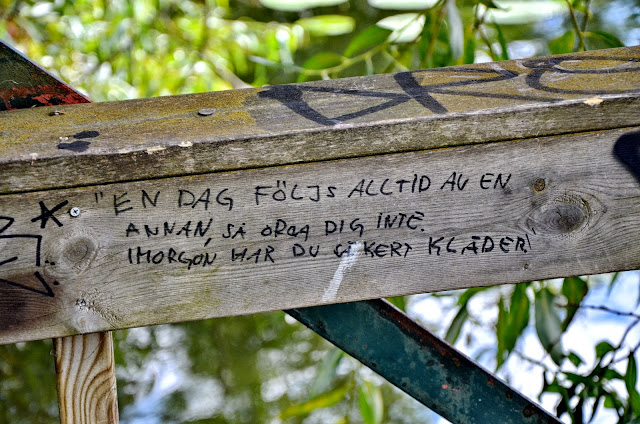 "EN DAG FÖLJS ALLTID AV EN
ANNAN, SÅ OROA DIG INTE.
IMORGON HAR DU SÄKERT KLÄDER!